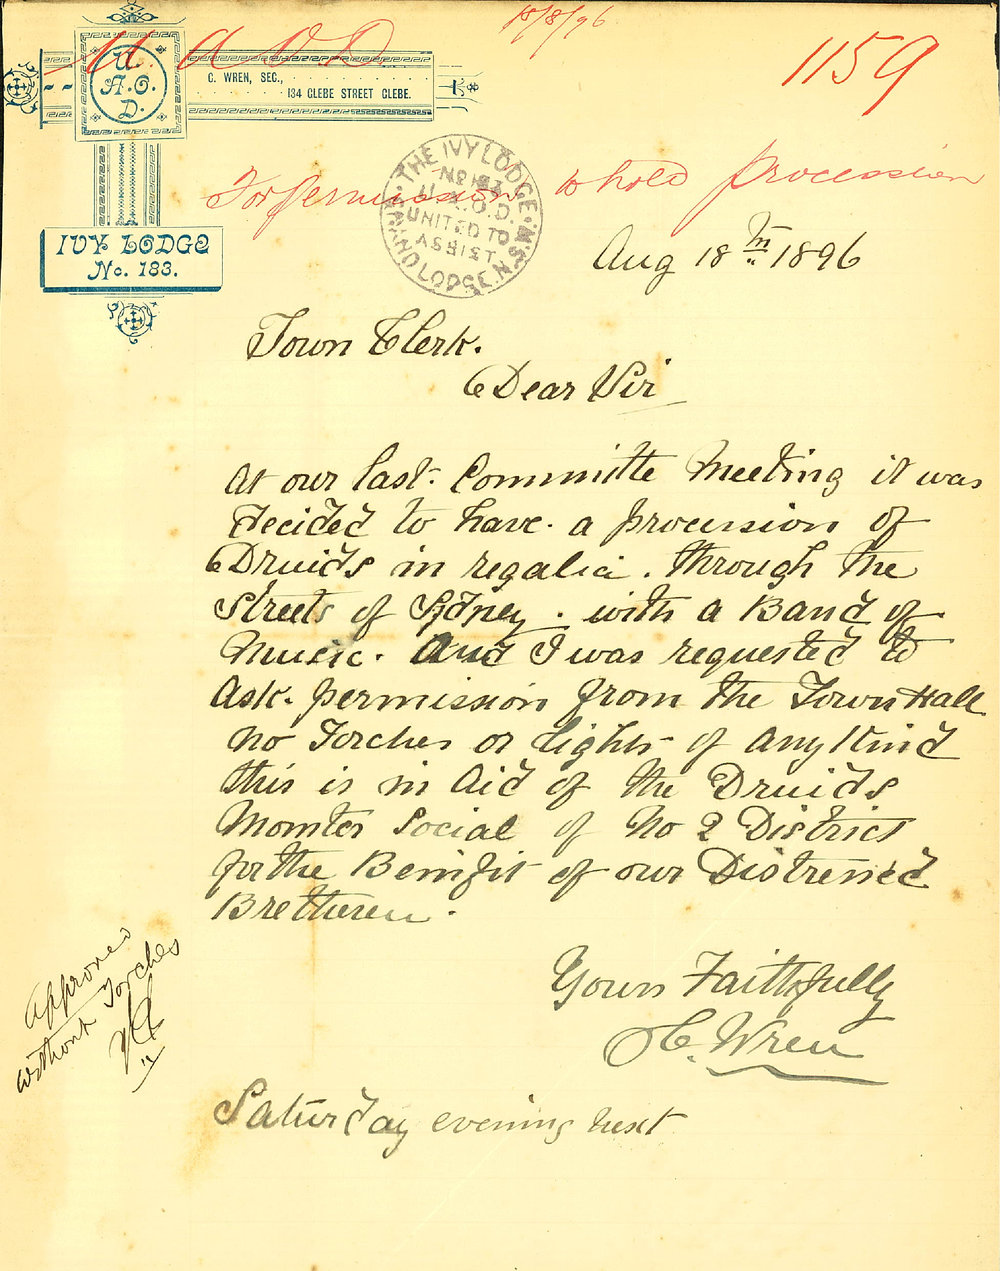 18/8/96
U A O D
1159
U.
A.O.
D.
C. WREN, SEC.,
134 GLEBE STREET GLEBE.
IVY LODGE
No. 183.
THE IVY LODGE
No 183
U.A.O.D.
UNITED TO
ASSIST
GRAND LODGE N.S.W.
For permission to hold procession
Aug 18th 1896
Town Clerk.
Dear Sir
At our last Committe Meeting it was
decided to have a procession of
Druids in regalia. through the
Streets of Sydney. with a Band of
Music. And I was requested to
Ask permission from the Town Hall
No Torches or Lights of Any Kind
this is in Aid of the Druids
Social of No 2 District
for the Benifit of our Distressed
Bretheren.
Yours Faithfully
C. Wren
Approved
without Torches
Saturday evening next